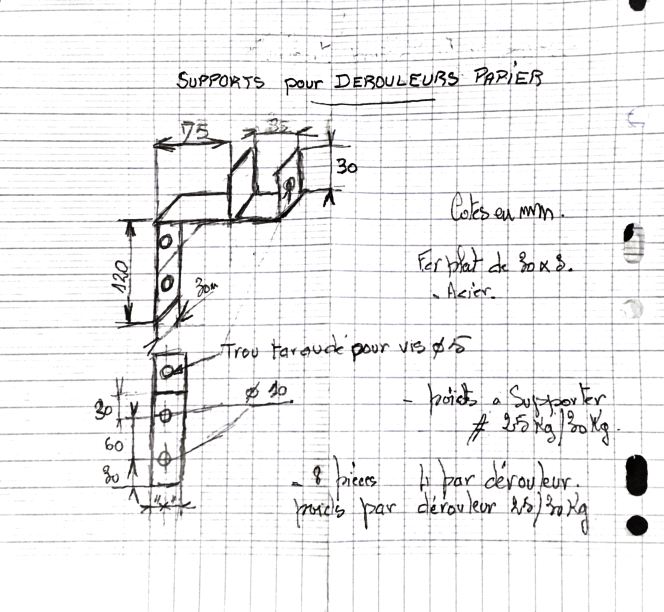 SUPPORTS pour DEROULEURS PAPIER
75
35
30
Cotes en mm.
120
Fer plat de 30 x 3.
- Acier.
30
Trou taraudé pour vis ø 5
ø 10
30
- poids a Supporter
# 25 Kg/30 Kg.
60
30
- 8 pièces 4 par dérouleur.
poids par dérouleur 25/30 Kg